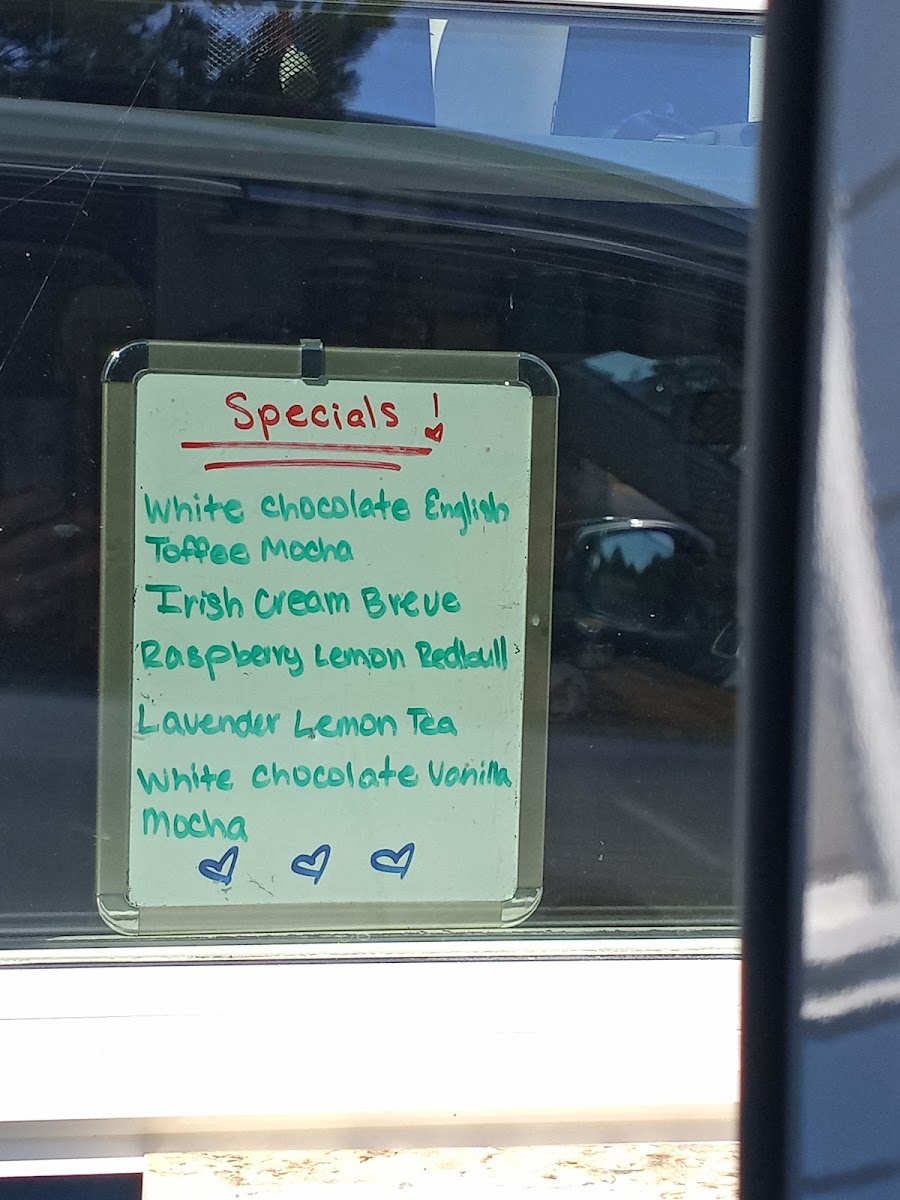 Specials !
White Chocolate English
Toffee Mocha
Irish Cream Breve
Raspberry Lemon Redbull
Lavender Lemon Tea
White Chocolate Vanilla
Mocha